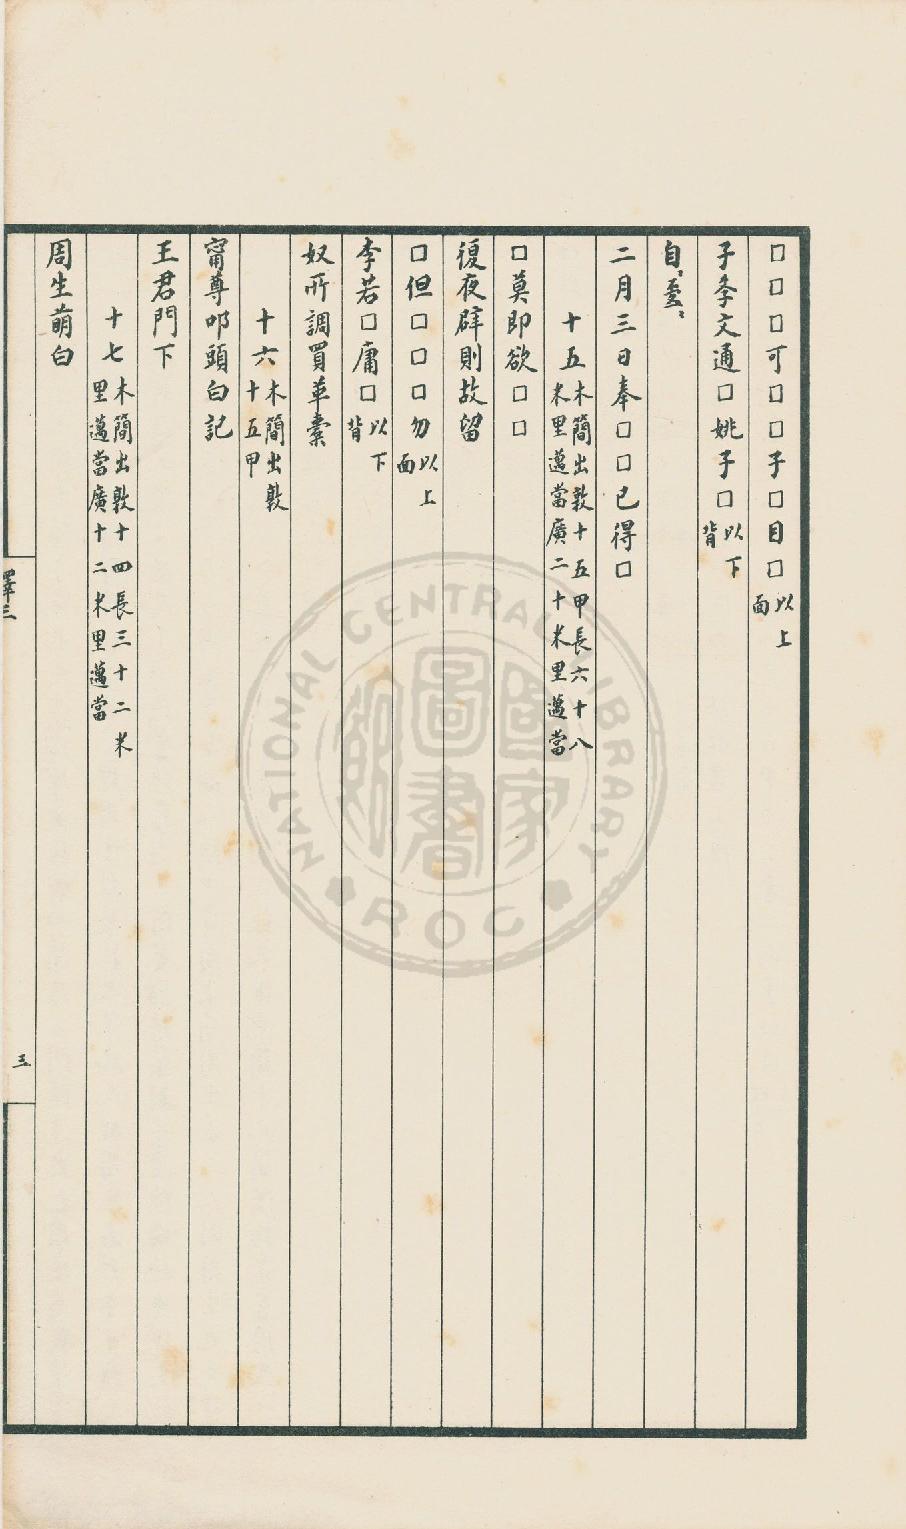 □□□可□□子□目□以上面
子季文通□姚子□以下背
自〻臺〻
二月三日奉□□已得□
十五木簡出敦十五甲長六十八米里邁當廣二十米里邁當
□莫即欲□□
復夜辟則故留
□但□□□勿以上面
李若□庸□以下背
奴所調買革橐
十六木簡出敦十五甲
甯尊叩頭白記
王君門下
十七木簡出敦十四長三十二米里邁當廣十二米里邁當
周生萌白
釋三
三
NATIONAL CENTRAL LIBRARY
ROC
國家圖書館